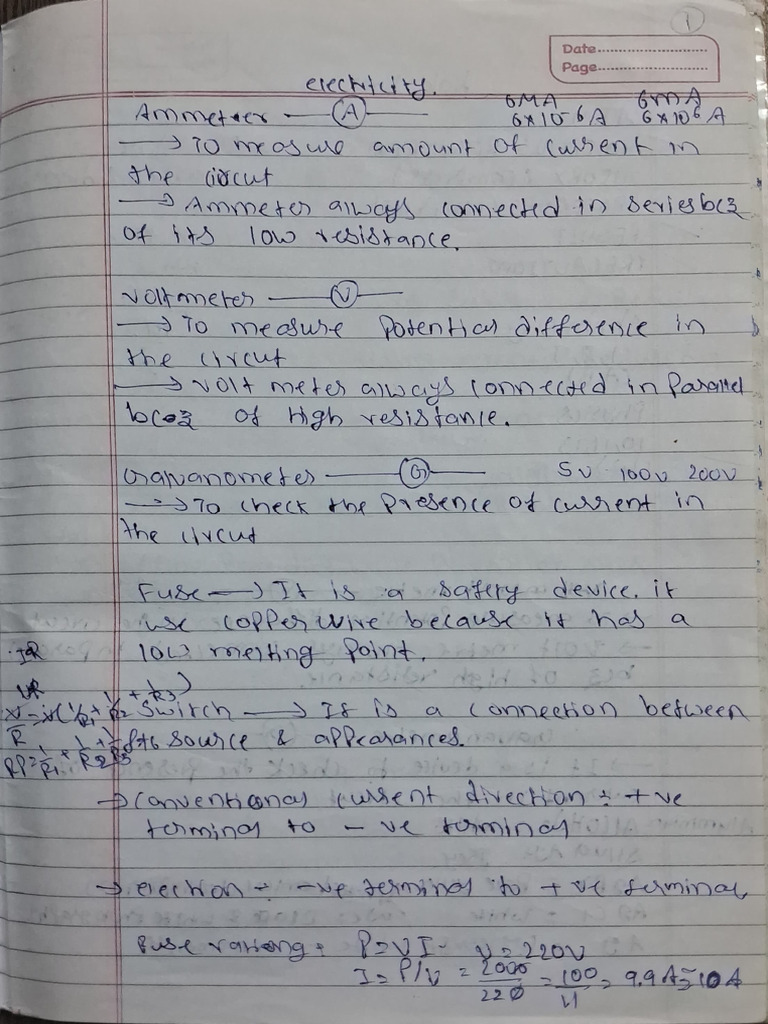 1
Date
Page
electricity.
6MA 6mA
Ammeter (A) 6×10-6A 6×10⁶A
→ To measure amount of current in
the circut
→ Ammeter always connected in series bcz
of its low resistance.
voltmeter (V)
→ To measure Potential difference in
the circut
→ volt meter always connected in Parallel
bcoz of High resistance.
Galvanometer (G) 5v 100v 200v
→ To check the Presence of current in
the circut
Fuse → It is a safety device. it
use copper wire because it has a
low melting Point.
Switch → It is a connection between
source & appearances.
→ conventional current direction ÷ +ve
terminal to -ve terminal
→ election ÷ -ve terminal to +ve terminal
Fuse rating: P=VI V=220V
I = P/V = 2000/220 = 100/11 = 9.9A ≈ 10A